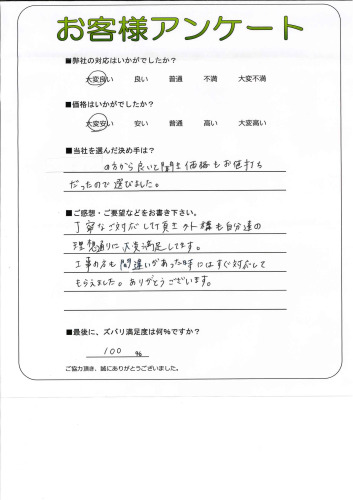 お客様アンケート
■弊社の対応はいかがでしたか?
大変良い 良い 普通 不満 大変不満
■価格はいかがでしたか?
大変安い 安い 普通 高い 大変高い
■当社を選んだ決め手は?
の方から良いと聞き価格もお値打ち
だったので選びました。
■ご感想・ご要望などをお書き下さい。
丁寧なご対応して頂き外構も自分達の
理想通りに大変満足してます。
工事の方も間違いがあった時にはすぐ対応して
もらえました。ありがとうございます。
■最後に、ズバリ満足度は何%ですか?
100 %
ご協力頂き、誠にありがとうございました。